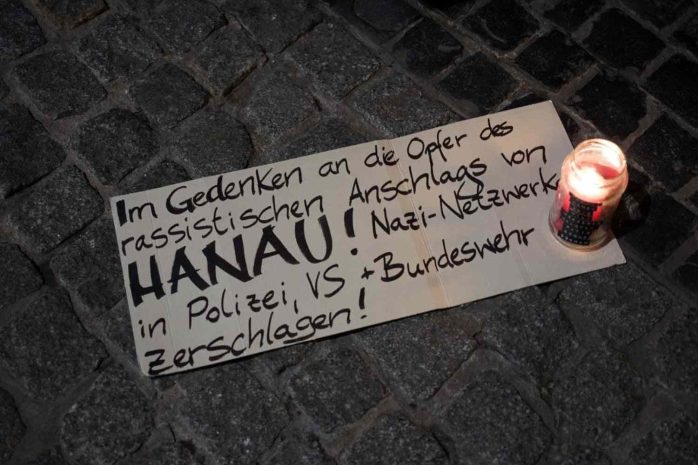 Im Gedenken an die Opfer des
rassistischen Anschlags von
HANAU! Nazi-Netzwerke
in Polizei, VS + Bundeswehr
zerschlagen!